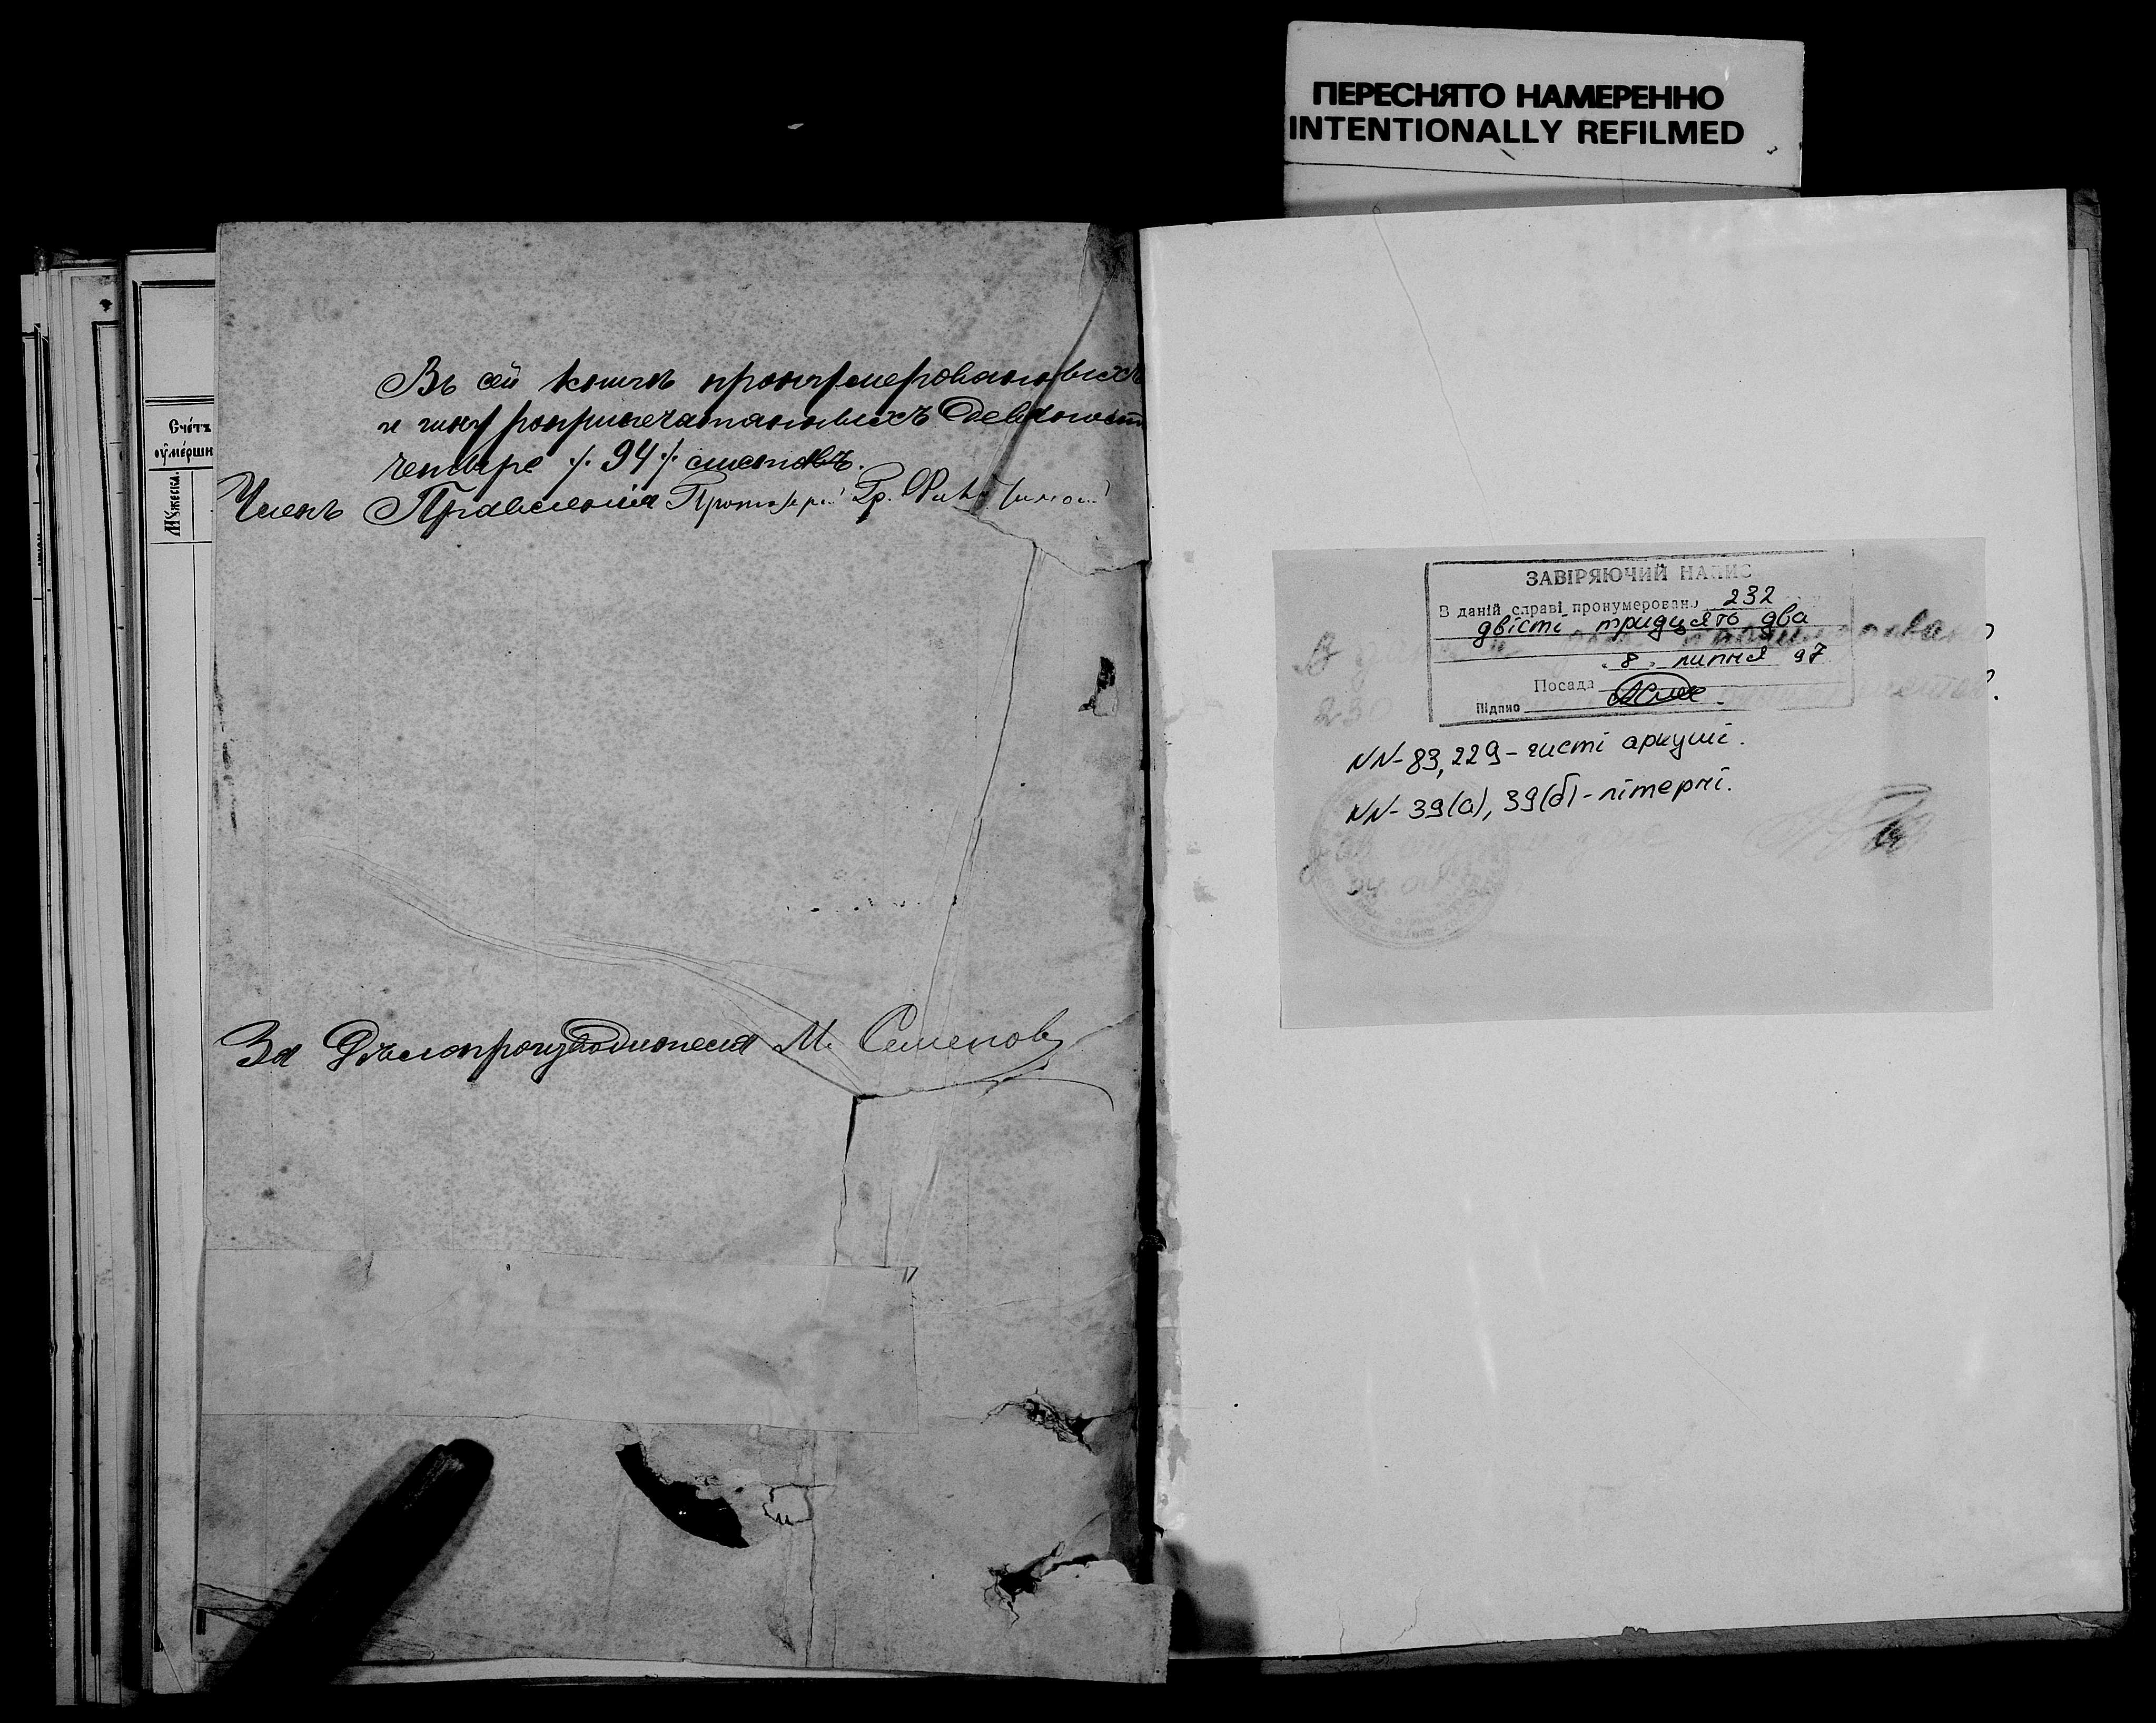 ПЕРЕСНЯТО НАМЕРЕННО
INTENTIONALLY REFILMED
Счéтъ
ѹмéрши
Мꙋ́жеска.
Въ сей книгѣ пронумерованныхъ
и шнуроприпечатанныхъ Девяносто
четыре ·/. 94 ·/. листовъ.
Членъ Правленія Протоіерей Гр.
За Дѣлопроизводителя М. Семенов
ЗАВІРЯЮЧИЙ НАПИС
В даній справі пронумеровано 232
двісті тридцять два
"8" липня 97
Посада
Підпис
NN-83, 229 - чисті аркуші.
NN-39(а), 39(б) - літерні.